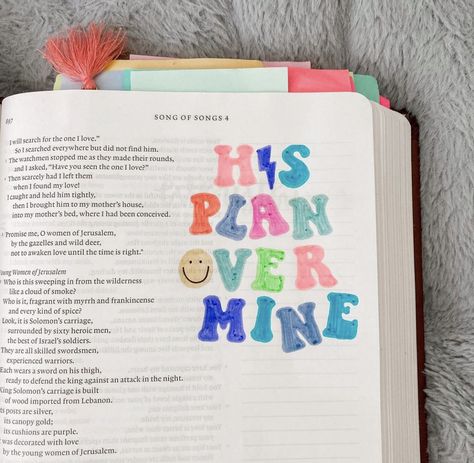 887
SONG OF SONGS 4
I will search for the one I love."
So I searched everywhere but did not find him.
3 The watchmen stopped me as they made their rounds,
and I asked, "Have you seen the one I love?"
4 Then scarcely had I left them
when I found my love!
I caught and held him tightly,
then I brought him to my mother's house,
into my mother's bed, where I had been conceived.
5 Promise me, O women of Jerusalem,
by the gazelles and wild deer,
not to awaken love until the time is right."
Young Women of Jerusalem
6 Who is this sweeping in from the wilderness
like a cloud of smoke?
Who is it, fragrant with myrrh and frankincense
and every kind of spice?
7 Look, it is Solomon's carriage,
surrounded by sixty heroic men,
the best of Israel's soldiers.
They are all skilled swordsmen,
experienced warriors.
Each wears a sword on his thigh,
ready to defend the king against an attack in the night.
King Solomon's carriage is built
of wood imported from Lebanon.
Its posts are silver,
its canopy gold;
its cushions are purple.
It was decorated with love
by the young women of Jerusalem.
HIS
PLAN
OVER
MINE